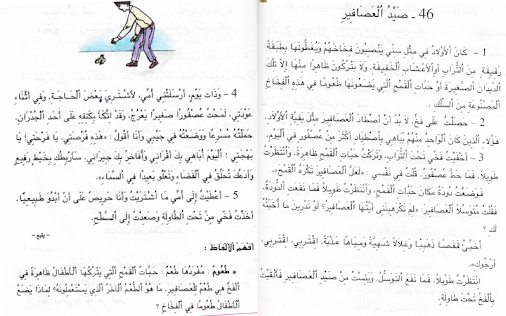 46 - صَيْدُ الْعَصَافِيرِ
1 - كَانَ الْأَوْلَادُ فِي مِثْلِ سِنِّي يَنْصِبُونَ فِخَاخَهُمْ وَيُغَطُّونَهَا بِطَبَقَةٍ
رَقِيقَةٍ مِنَ التُّرَابِ أَوِ الْأَعْشَابِ الْخَفِيفَةِ. وَلَا يَتْرُكُونَ ظَاهِرًا مِنْهَا إِلَّا تِلْكَ
الدِّيدَانَ الصَّغِيرَةَ أَوْ حَبَّاتِ الْقَمْحِ الَّتِي يَضَعُونَهَا طُعُومًا فِي هَذِهِ الْفِخَاخِ
الْمَصْنُوعَةِ مِنَ السِّلْكِ.
2 - حَصَلْتُ عَلَى فَخٍّ. لَا بُدَّ أَنْ أَصْطَادَ الْعَصَافِيرَ مِثْلَ بَقِيَّةِ الْأَوْلَادِ.
هَؤُلَاءِ الَّذِينَ كَانَ الْوَاحِدُ مِنْهُمْ يُبَاهِي بِاصْطِيَادِ أَكْثَرَ مِنْ عُصْفُورٍ فِي الْيَوْمِ.
3 - أَخْفَيْتُ فَخِّي تَحْتَ التُّرَابِ. وَتَرَكْتُ حَبَّاتِ الْقَمْحِ ظَاهِرَةً. وَانْتَظَرْتُ
طَوِيلًا. فَمَا حَطَّ عُصْفُورٌ. قُلْتُ فِي نَفْسِي: «لَعَلَّ الْعَصَافِيرَ تَكْرَهُ الْقَمْحَ».
فَوَضَعْتُ دُودَةً مَكَانَ حَبَّاتِ الْقَمْحِ. وَانْتَظَرْتُ طَوِيلًا فَمَا نَفَعَتِ الدُّودَةُ.
فَقُلْتُ مُتَوَسِّلًا الْعَصَافِيرَ: «لِمَ تَكْرَهِينَنِي أَيَّتُهَا الْعَصَافِيرُ؟ لَوْ تَدْرِينَ مَا أُخَبِّئُ
أُخَبِّئُ قَفَصًا ذَهَبِيًّا وَغِلَالًا شَهِيَّةً وَمِيَاهًا عَذْبَةً. اقْتَرِبِي. اقْتَرِبِي.
أَرْجُوكِ».
انْتَظَرْتُ طَوِيلًا. فَمَا نَفَعَ التَّوَسُّلُ. وَيَئِسْتُ مِنْ صَيْدِ الْعَصَافِيرِ فَأَلْقَيْتُ
بِالْفَخِّ تَحْتَ طَاوِلَةٍ.
4 - وَذَاتَ يَوْمٍ، أَرْسَلَتْنِي أُمِّي، لِأَشْتَرِيَ بَعْضَ الْحَاجَةِ. وَفِي أَثْنَاءِ
عَوْدَتِي، لَمَحْتُ عُصْفُورًا صَغِيرًا يَعْرُجُ، وَقَدِ اتَّكَأَ بِكَتِفِهِ عَلَى أَحَدِ الْجُدْرَانِ.
حَمَلْتُهُ مُسْرِعًا وَوَضَعْتُهُ فِي جَيْبِي وَأَنَا أَقُولُ: «هَذِهِ فُرْصَتِي. يَا فَرْحَتِي! يَا
بَهْجَتِي! الْيَوْمَ أُبَاهِي بِكَ أَقْرَانِي وَأُفَاخِرُ بِكَ جِيرَانِي. سَأَرْبِطُكَ بِخَيْطٍ رَفِيعٍ
وَأَدَعُكَ تُحَلِّقُ فِي الْفَضَاءِ وَتَعْلُو بَعِيدًا فِي السَّمَاءِ».
5 - أَعْطَيْتُ إِلَى أُمِّي مَا اشْتَرَيْتُ وَأَنَا حَرِيصٌ عَلَى أَنْ أَبْدُوَ طَبِيعِيًّا.
أَخَذْتُ فَخِّي مِنْ تَحْتِ الطَّاوِلَةِ وَصَعَدْتُ إِلَى السَّطْحِ.
-يتبع-
أَفْهَمُ الْأَلْفَاظَ :
• طُعُومٌ : مُفْرَدُهَا طُعْمٌ : حَبَّاتُ الْقَمْحِ الَّتِي يَتْرُكُهَا الْأَطْفَالُ ظَاهِرَةً فِي
الْفَخِّ هِيَ طُعْمٌ لِلْعَصَافِيرِ. مَا هُوَ الطُّعْمُ الْآخَرُ الَّذِي يَسْتَعْمِلُونَهُ؟ لِمَاذَا يَضَعُ
الْأَطْفَالُ طُعُومًا فِي الْفِخَاخِ ؟